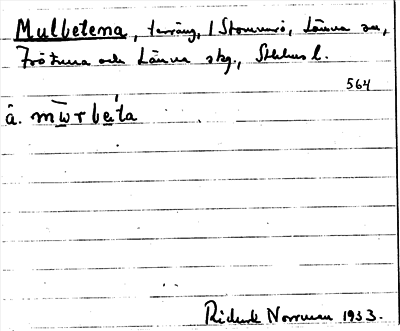 Mulbetena, terräng, i Stommarö, Länna sn,
Frötuna och Länna skg., Sthlms l.
564
å. mw̲̄rbe̲ta
Rickard Norrman 1933.